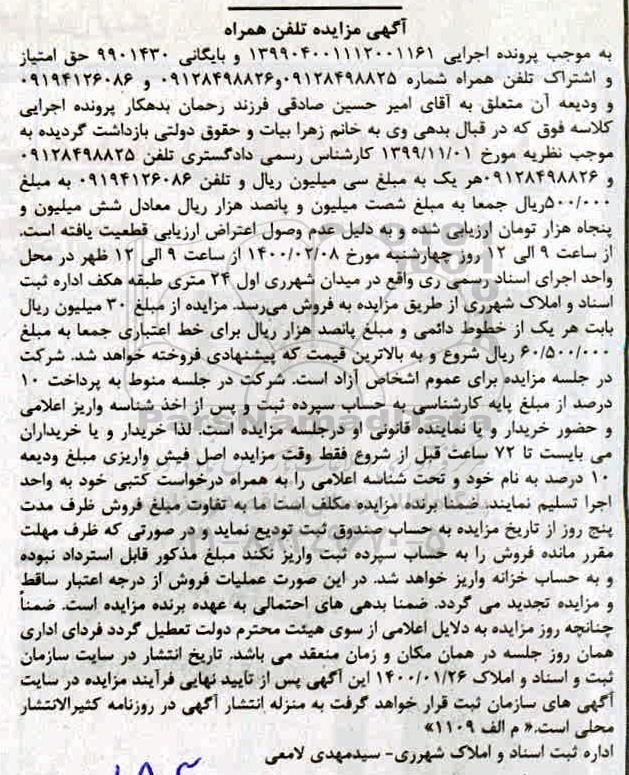 آگهی مزایده تلفن همراه
به موجب پرونده اجرایی ۱۳۹۹۰۴۰۰۱۱۱۲۰۰۱۱۶۱ و بایگانی ۹۹۰۱۴۳۰ حق امتیاز
و اشتراک تلفن همراه شماره ۰۹۱۲۸۴۹۸۸۲۵و۰۹۱۲۸۴۹۸۸۲۶ و ۰۹۱۹۴۱۲۶۰۸۶
و ودیعه آن متعلق به آقای امیر حسین صادقی فرزند رحمان بدهکار پرونده اجرایی
کلاسه فوق که در قبال بدهی وی به خانم زهرا بیات و حقوق دولتی بازداشت گردیده به
موجب نظریه مورخ ۱۳۹۹/۱۱/۰۱ کارشناس رسمی دادگستری تلفن ۰۹۱۲۸۴۹۸۸۲۵
و ۰۹۱۲۸۴۹۸۸۲۶هر یک به مبلغ سی میلیون ریال و تلفن ۰۹۱۹۴۱۲۶۰۸۶ به مبلغ
۵۰۰/۰۰۰ریال جمعا به مبلغ شصت میلیون و پانصد هزار ریال معادل شش میلیون و
پنجاه هزار تومان ارزیابی شده و به دلیل عدم وصول اعتراض ارزیابی قطعیت یافته است.
از ساعت ۹ الی ۱۲ روز چهارشنبه مورخ ۱۴۰۰/۰۲/۰۸ از ساعت ۹ الی ۱۲ ظهر در محل
واحد اجرای اسناد رسمی ری واقع در میدان شهرری اول ۲۴ متری طبقه هکف اداره ثبت
اسناد و املاک شهرری از طریق مزایده به فروش می‌رسد. مزایده از مبلغ ۳۰ میلیون ریال
بابت هر یک از خطوط دائمی و مبلغ پانصد هزار ریال برای خط اعتباری جمعا به مبلغ
۶۰/۵۰۰/۰۰۰ ریال شروع و به بالاترین قیمت که پیشنهادی فروخته خواهد شد. شرکت
در جلسه مزایده برای عموم اشخاص آزاد است. شرکت در جلسه منوط به پرداخت ۱۰
درصد از مبلغ پایه کارشناسی به حساب سپرده ثبت و پس از اخذ شناسه واریز اعلامی
و حضور خریدار و یا نماینده قانونی او درجلسه مزایده است. لذا خریدار و یا خریداران
می بایست تا ۷۲ ساعت قبل از شروع فقط وقت مزایده اصل فیش واریزی مبلغ ودیعه
۱۰ درصد به نام خود و تحت شناسه اعلامی را به همراه درخواست کتبی خود به واحد
اجرا تسلیم نمایند. ضمنا برنده مزایده مکلف است ما به تفاوت مبلغ فروش ظرف مدت
پنج روز از تاریخ مزایده به حساب صندوق ثبت تودیع نماید و در صورتی که ظرف مهلت
مقرر مانده فروش را به حساب سپرده ثبت واریز نکند مبلغ مذکور قابل استرداد نبوده
و به حساب خزانه واریز خواهد شد. در این صورت عملیات فروش از درجه اعتبار ساقط
و مزایده تجدید می گردد. ضمنا بدهی های احتمالی به عهده برنده مزایده است. ضمناً
چنانچه روز مزایده به دلایل اعلامی از سوی هیئت محترم دولت تعطیل گردد فردای اداری
همان روز جلسه در همان مکان و زمان منعقد می باشد. تاریخ انتشار در سایت سازمان
ثبت و اسناد و املاک ۱۴۰۰/۰۱/۲۶ این آگهی پس از تایید نهایی فرآیند مزایده در سایت
آگهی های سازمان ثبت قرار خواهد گرفت به منزله انتشار آگهی در روزنامه کثیرالانتشار
محلی است.« م الف ۱۱۰۹»
اداره ثبت اسناد و املاک شهرری- سیدمهدی لامعی